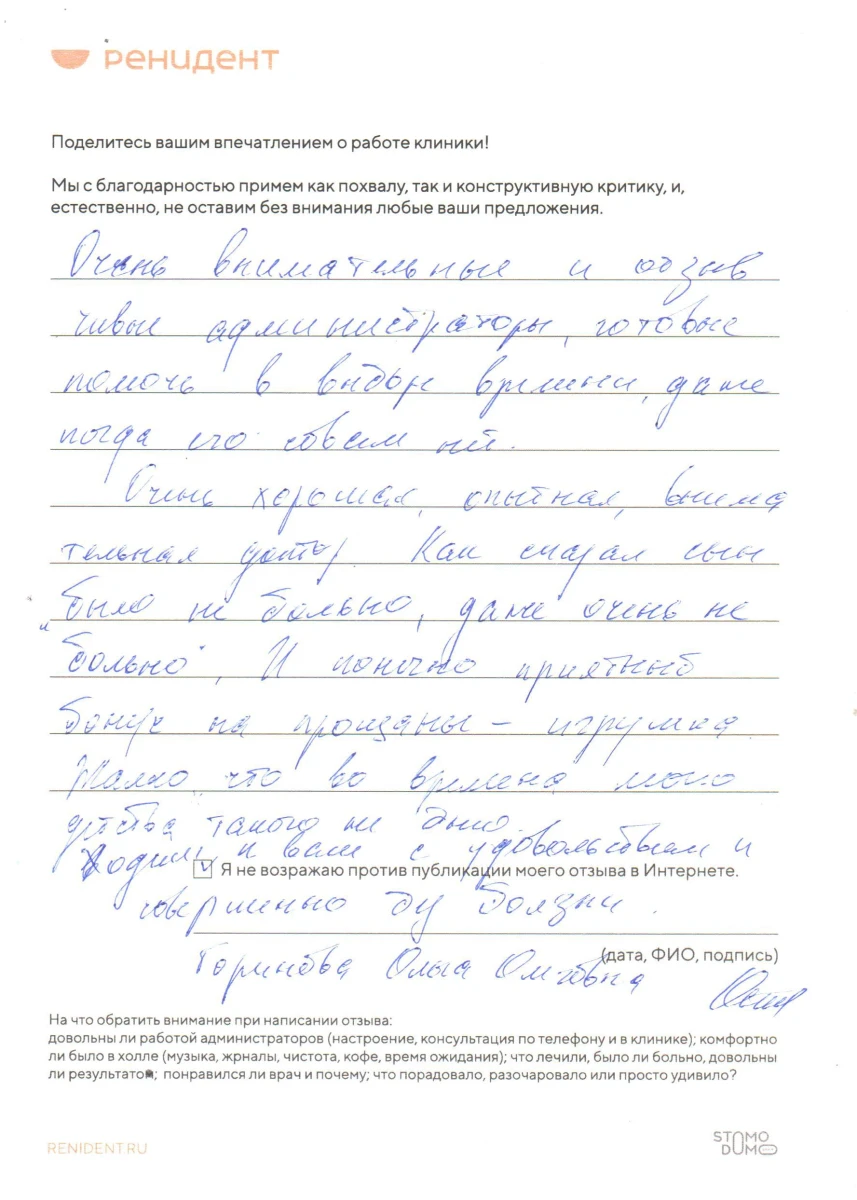 РЕНИДЕНТ
Поделитесь вашим впечатлением о работе клиники!
Мы с благодарностью примем как похвалу, так и конструктивную критику, и,
естественно, не оставим без внимания любые ваши предложения.
Очень внимательные и отзыв
чивые администраторы, готовые
помочь в времени, даже
когда его совсем нет.
Очень хорошая, опытная, внима
тельная доктор. Как сказал сын
"было не больно, даже очень не
больно", И конечно приятный
бонус на прощаны – игрушка
Жалко, что во времена моего
детства такого не было.
Ходим к вам с удовольствием и
Я не возражаю против публикации моего отзыва в Интернете.
совершенно без боязни.
(дата, ФИО, подпись)
Ольга
На что обратить внимание при написании отзыва:
довольны ли работой администраторов (настроение, консультация по телефону и в клинике); комфортно
ли было в холле (музыка, жрналы, чистота, кофе, время ожидания); что лечили, было ли больно, довольны
ли результатом; понравился ли врач и почему; что порадовало, разочаровало или просто удивило?
RENIDENT.RU
STOMO
DOM